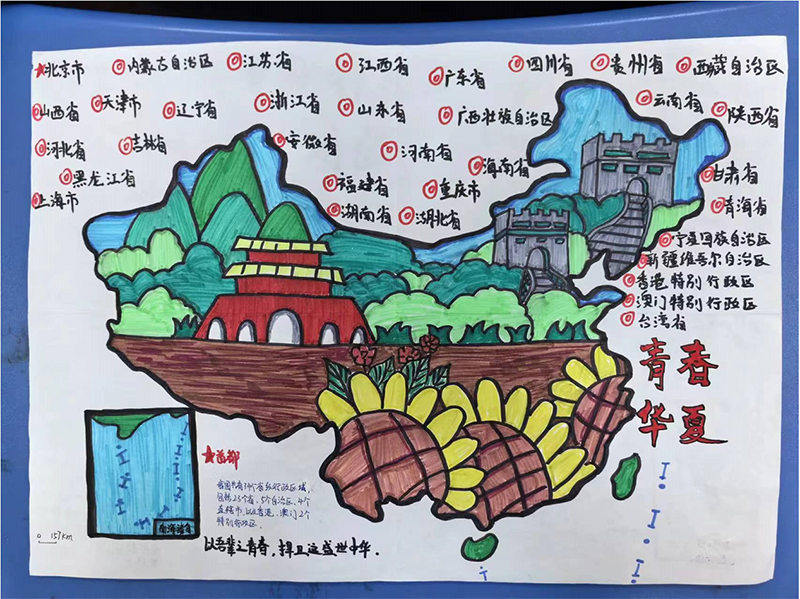 ★北京市 ◎内蒙古自治区 ◎江苏省 ◎江西省 ◎广东省 ◎四川省 ◎贵州省 ◎西藏自治区
◎山西省 ◎天津市 ◎辽宁省 ◎浙江省 ◎山东省 ◎广西壮族自治区 ◎云南省 ◎陕西省
◎河北省 ◎吉林省 ◎安徽省 ◎河南省 ◎海南省 ◎甘肃省
◎上海市 ◎黑龙江省 ◎福建省 ◎重庆市 ◎青海省
◎湖南省 ◎湖北省
◎宁夏回族自治区
◎新疆维吾尔自治区
◎香港特别行政区
◎澳门特别行政区
◎台湾省
青春
华夏
★首都
我国共有34个省级行政区域,
包括23个省、5个自治区、4个
直辖市,以及香港、澳门2个
特别行政区.
南海诸岛
0 157km
以吾辈之青春,捍卫这盛世中华.